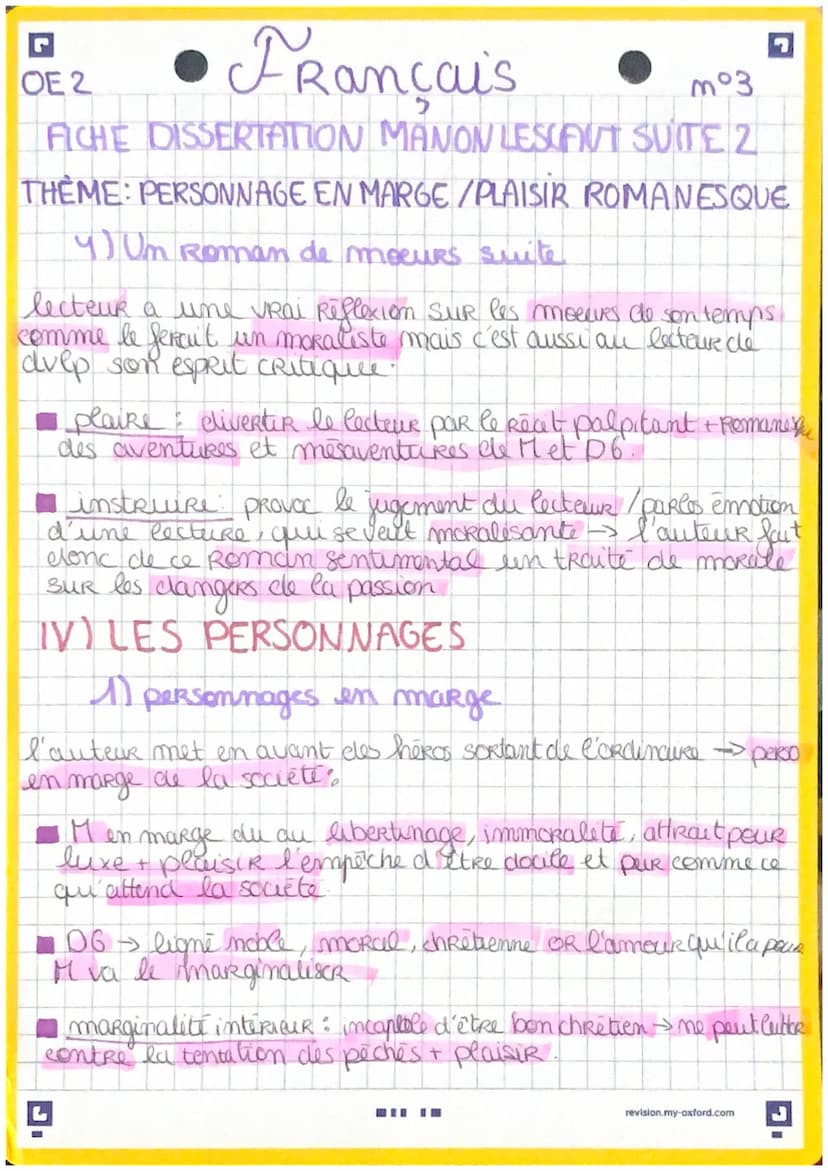 OE2
Français
n°3
FICHE DISSERTATION MANON LESCAUT SUITE 2
THÈME: PERSONNAGE EN MARGE / PLAISIR ROMANESQUE
4) Un Roman de moeurs suite
lecteur a une vrai Réflexion sur les moeurs de son temps
comme le ferait un moraliste mais c'est aussi au lecteur de
dvlp son esprit critique.
plaire : divertir le lecteur par le récit palpitant + Romanesque
des aventures et mésaventures de M et DG.
instruire: provoc le jugement du lecteur / par les émotion
d'une lecture, qui se veut moralisante → l'auteur fait
donc de ce Roman sentimental un traité de morale
sur les dangers de la passion
IV) LES PERSONNAGES
1) personnages en marge
l'auteur met en avant des héros sortant de l'ordinaire → perso
en marge de la société:
M en marge du au libertinage, immoralité, attrait pour
luxe + plaisir l'empêche d'être docile et pur comme ce
qu'attend la société
DG → ligné noble, moral, chrétienne OR l'amour qu'il a pour
M va le marginaliser
marginalité intérieur : incapable d'être bon chrétien → ne peut lutter
contre la tentation des péchés + plaisir.
revision.my-oxford.com